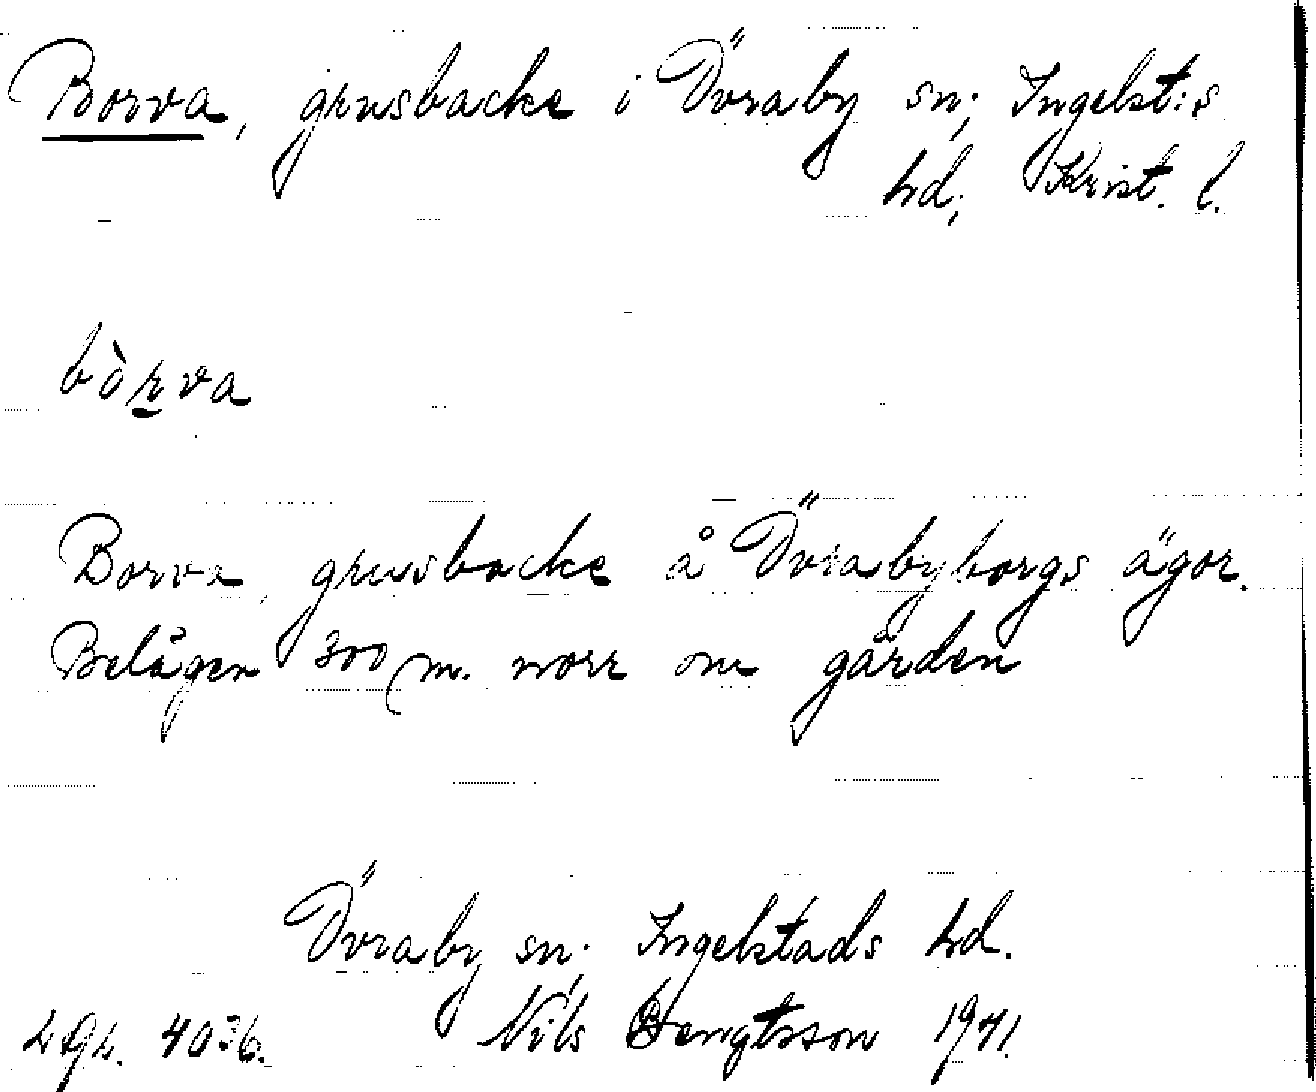 Borva, grusbacke i Övraby sn; Ingelst:s
hd; Krist. l.
bòrva
Borva, grusbacke å Övrabyborgs ägor.
Belägen 300 m. norr om gården
Övraby sn; Ingelstads hd.
Nils Bengtsson 1941.
4036.